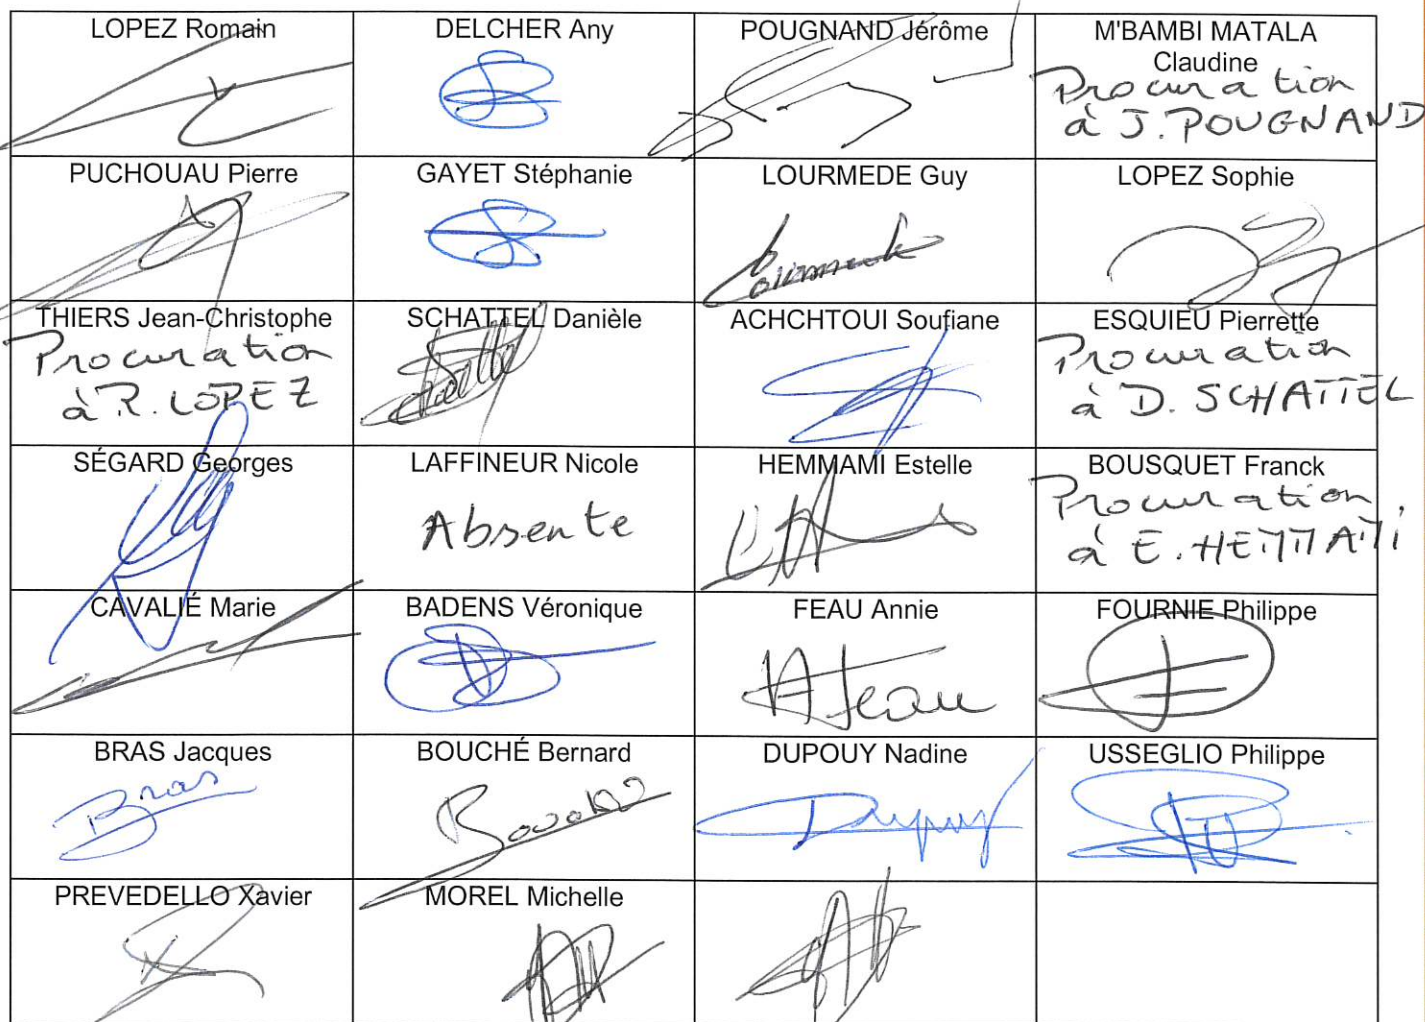 LOPEZ Romain
DELCHER Any
POUGNAND Jérôme
M'BAMBI MATALA
Claudine
Procuration
à J. POUGNAND
PUCHOUAU Pierre
GAYET Stéphanie
LOURMEDE Guy
LOPEZ Sophie
THIERS Jean-Christophe
Procuration
à R. LOPEZ
SCHATTEL Danièle
ACHCHTOUI Soufiane
ESQUIEU Pierrette
Procuration
à D. SCHATTEL
SÉGARD Georges
LAFFINEUR Nicole
Absente
HEMMAMI Estelle
BOUSQUET Franck
Procuration
à E. HEMMAMI
CAVALIÉ Marie
BADENS Véronique
FEAU Annie
A Feau
FOURNIE Philippe
BRAS Jacques
Bras
BOUCHÉ Bernard
DUPOUY Nadine
Dupouy
USSEGLIO Philippe
PREVEDELLO Xavier
MOREL Michelle